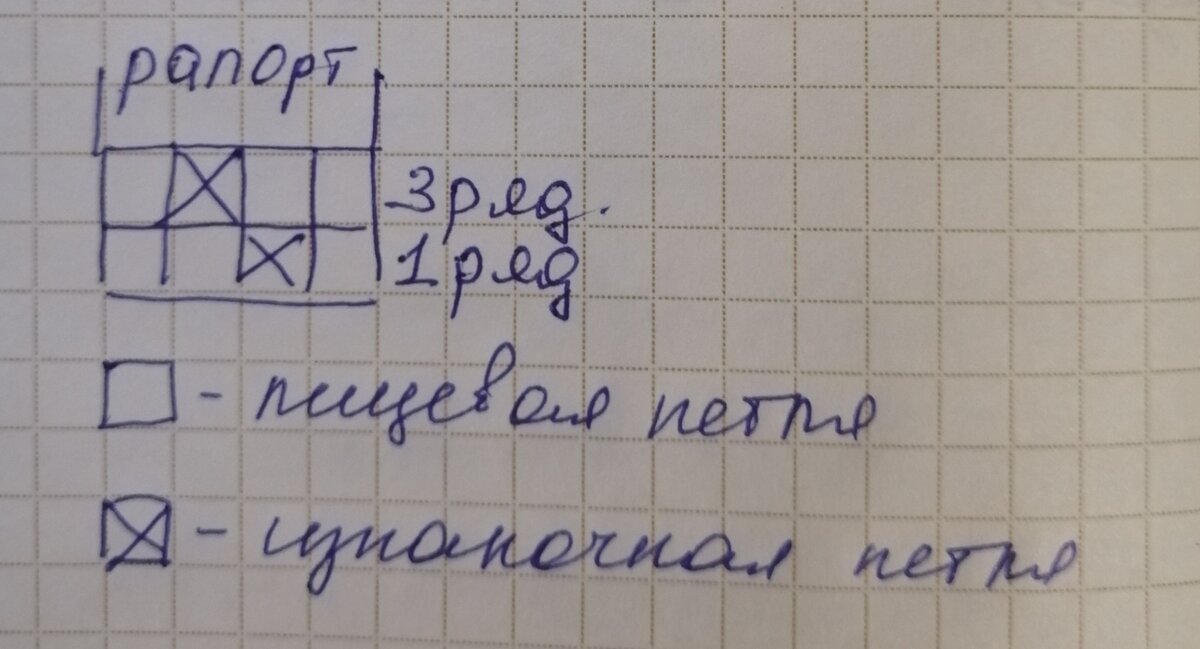 рапорт
3 ряд.
1 ряд
- лицевая петля
- изнаночная петля